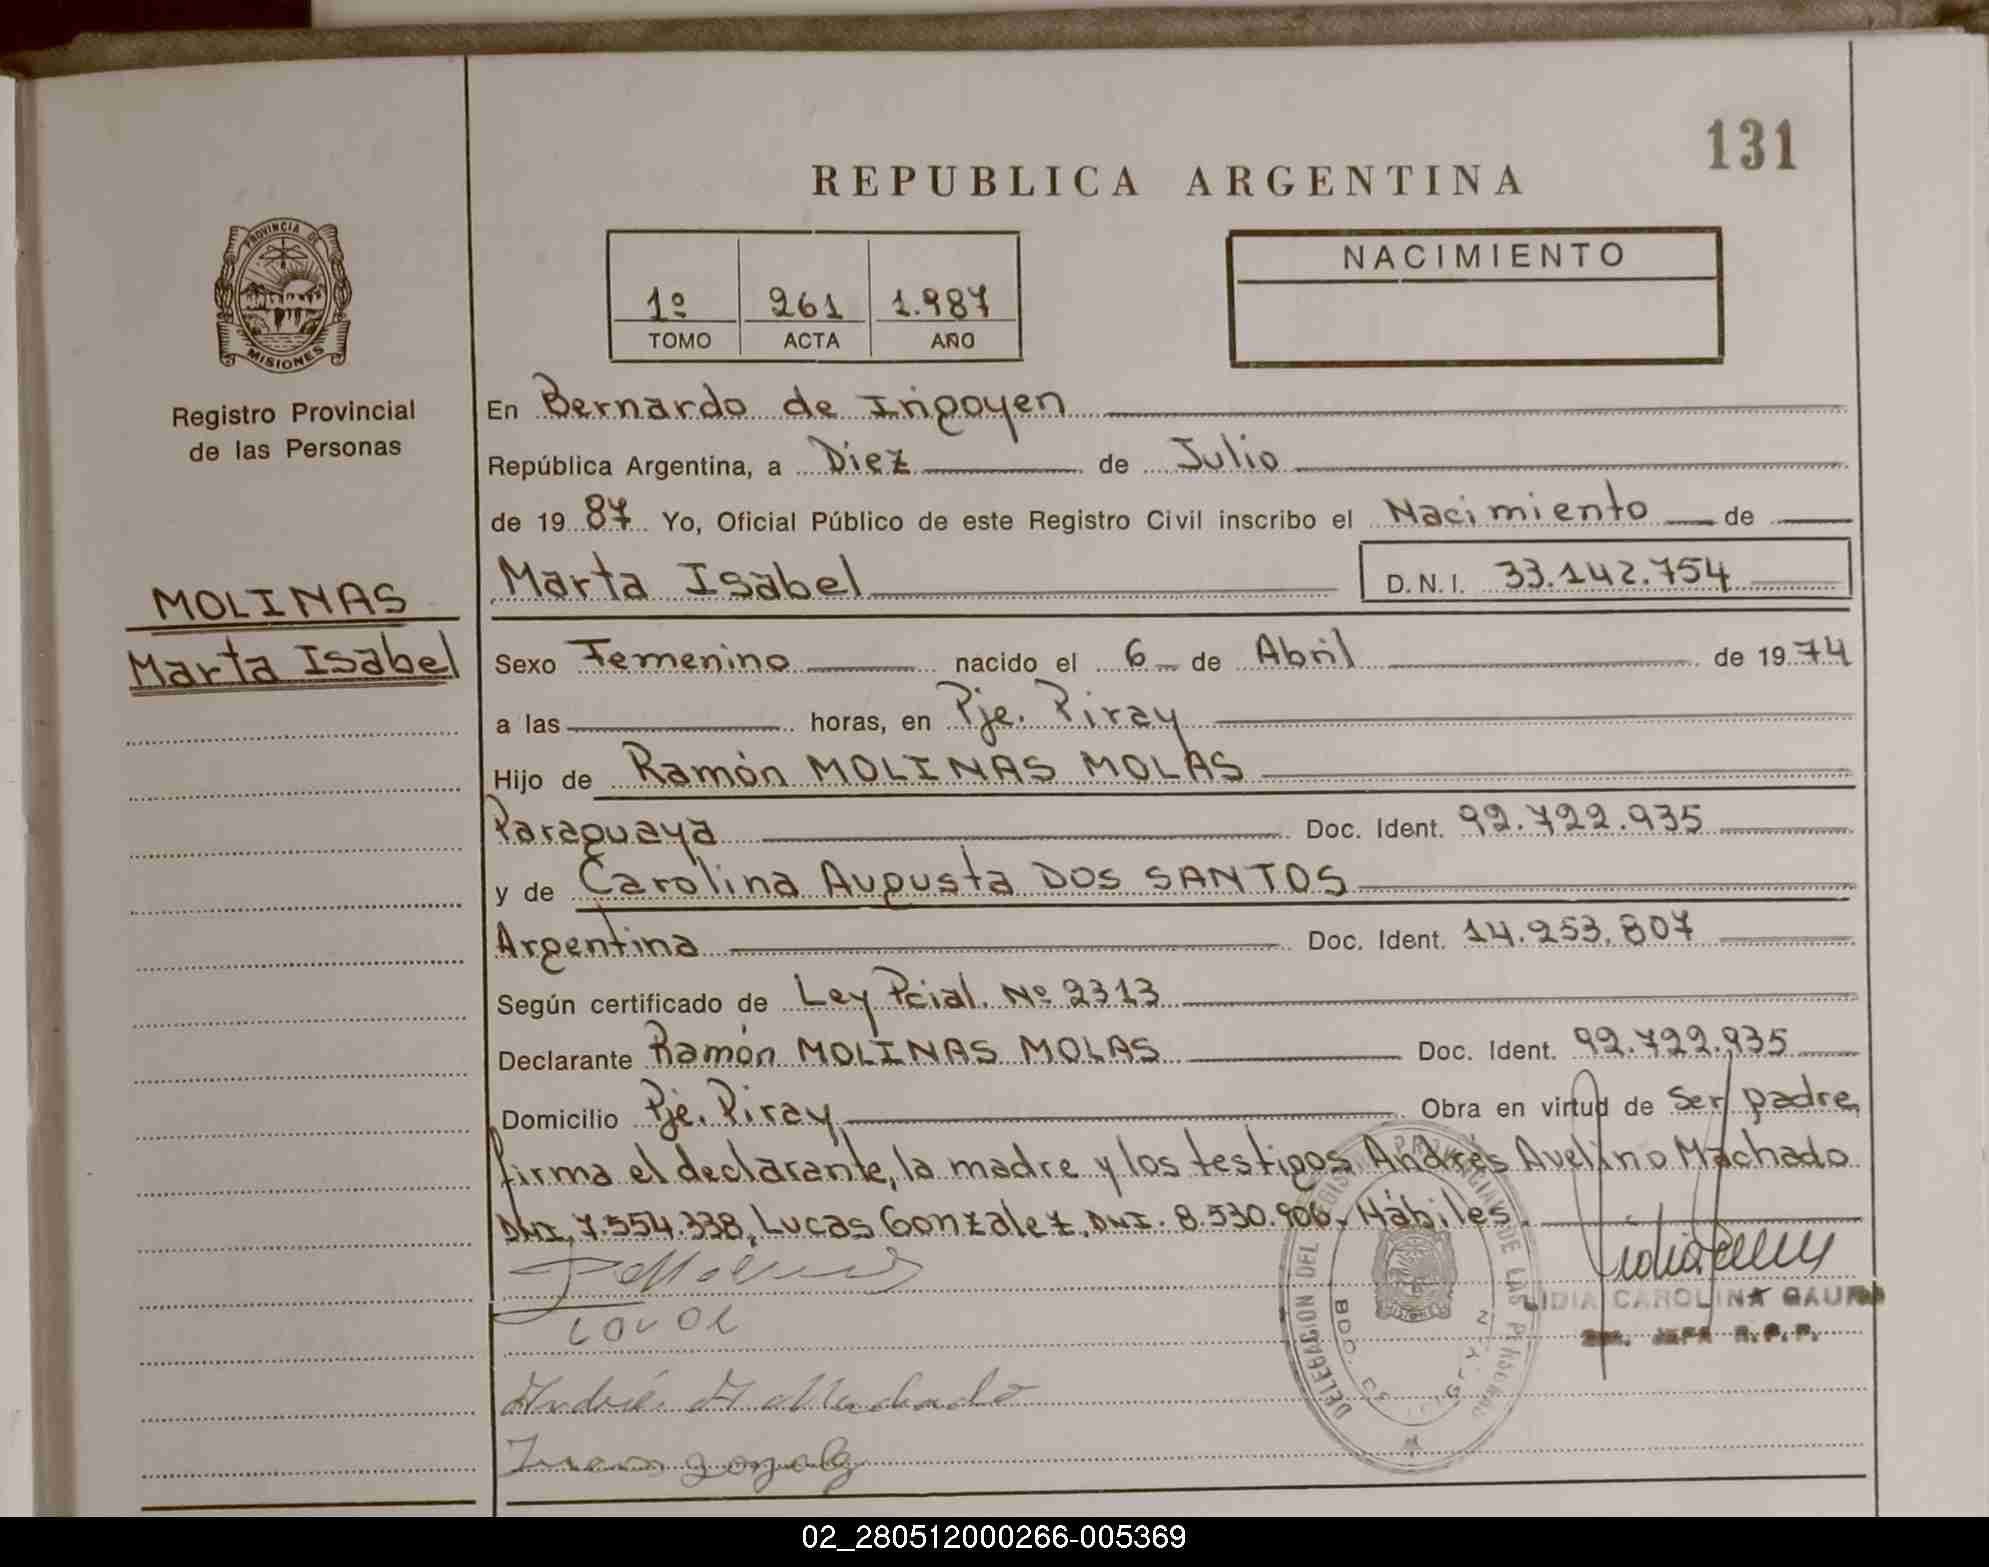 131
REPUBLICA ARGENTINA
PROVINCIA DE
MISIONES
Registro Provincial
de las Personas
1º 261 1.987
TOMO ACTA AÑO
NACIMIENTO
En Bernardo de Irigoyen
República Argentina, a Diez de Julio
de 19 87 Yo, Oficial Público de este Registro Civil inscribo el Nacimiento de
Marta Isabel D.N.I. 33.142.754
MOLINAS
Marta Isabel
Sexo Femenino nacido el 6 de Abril de 19 74
a las horas, en Pje. Piray
Hijo de Ramón MOLINAS MOLAS
Paraguaya Doc. Ident. 92.722.935
y de Carolina Augusta DOS SANTOS
Argentina Doc. Ident. 14.253.807
Según certificado de Ley Pcial. Nº 2313
Declarante Ramón MOLINAS MOLAS Doc. Ident. 92.722.935
Domicilio Pje. Piray Obra en virtud de Ser padre,
firma el declarante, la madre y los testigos Andrés Avelino Machado
DNI. 7.554.338, Lucas Gonzalez, DNI. 8.530.906, Hábiles.
DELEGACION DEL REGISTRO PROVINCIAL DE LAS PERSONAS
LIDIA CAROLINA
JEFA R.P.P.
02_280512000266-005369